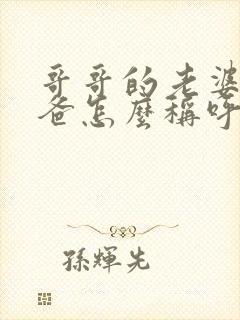 哥哥的老婆
爸怎麼稱呼
孫輝先